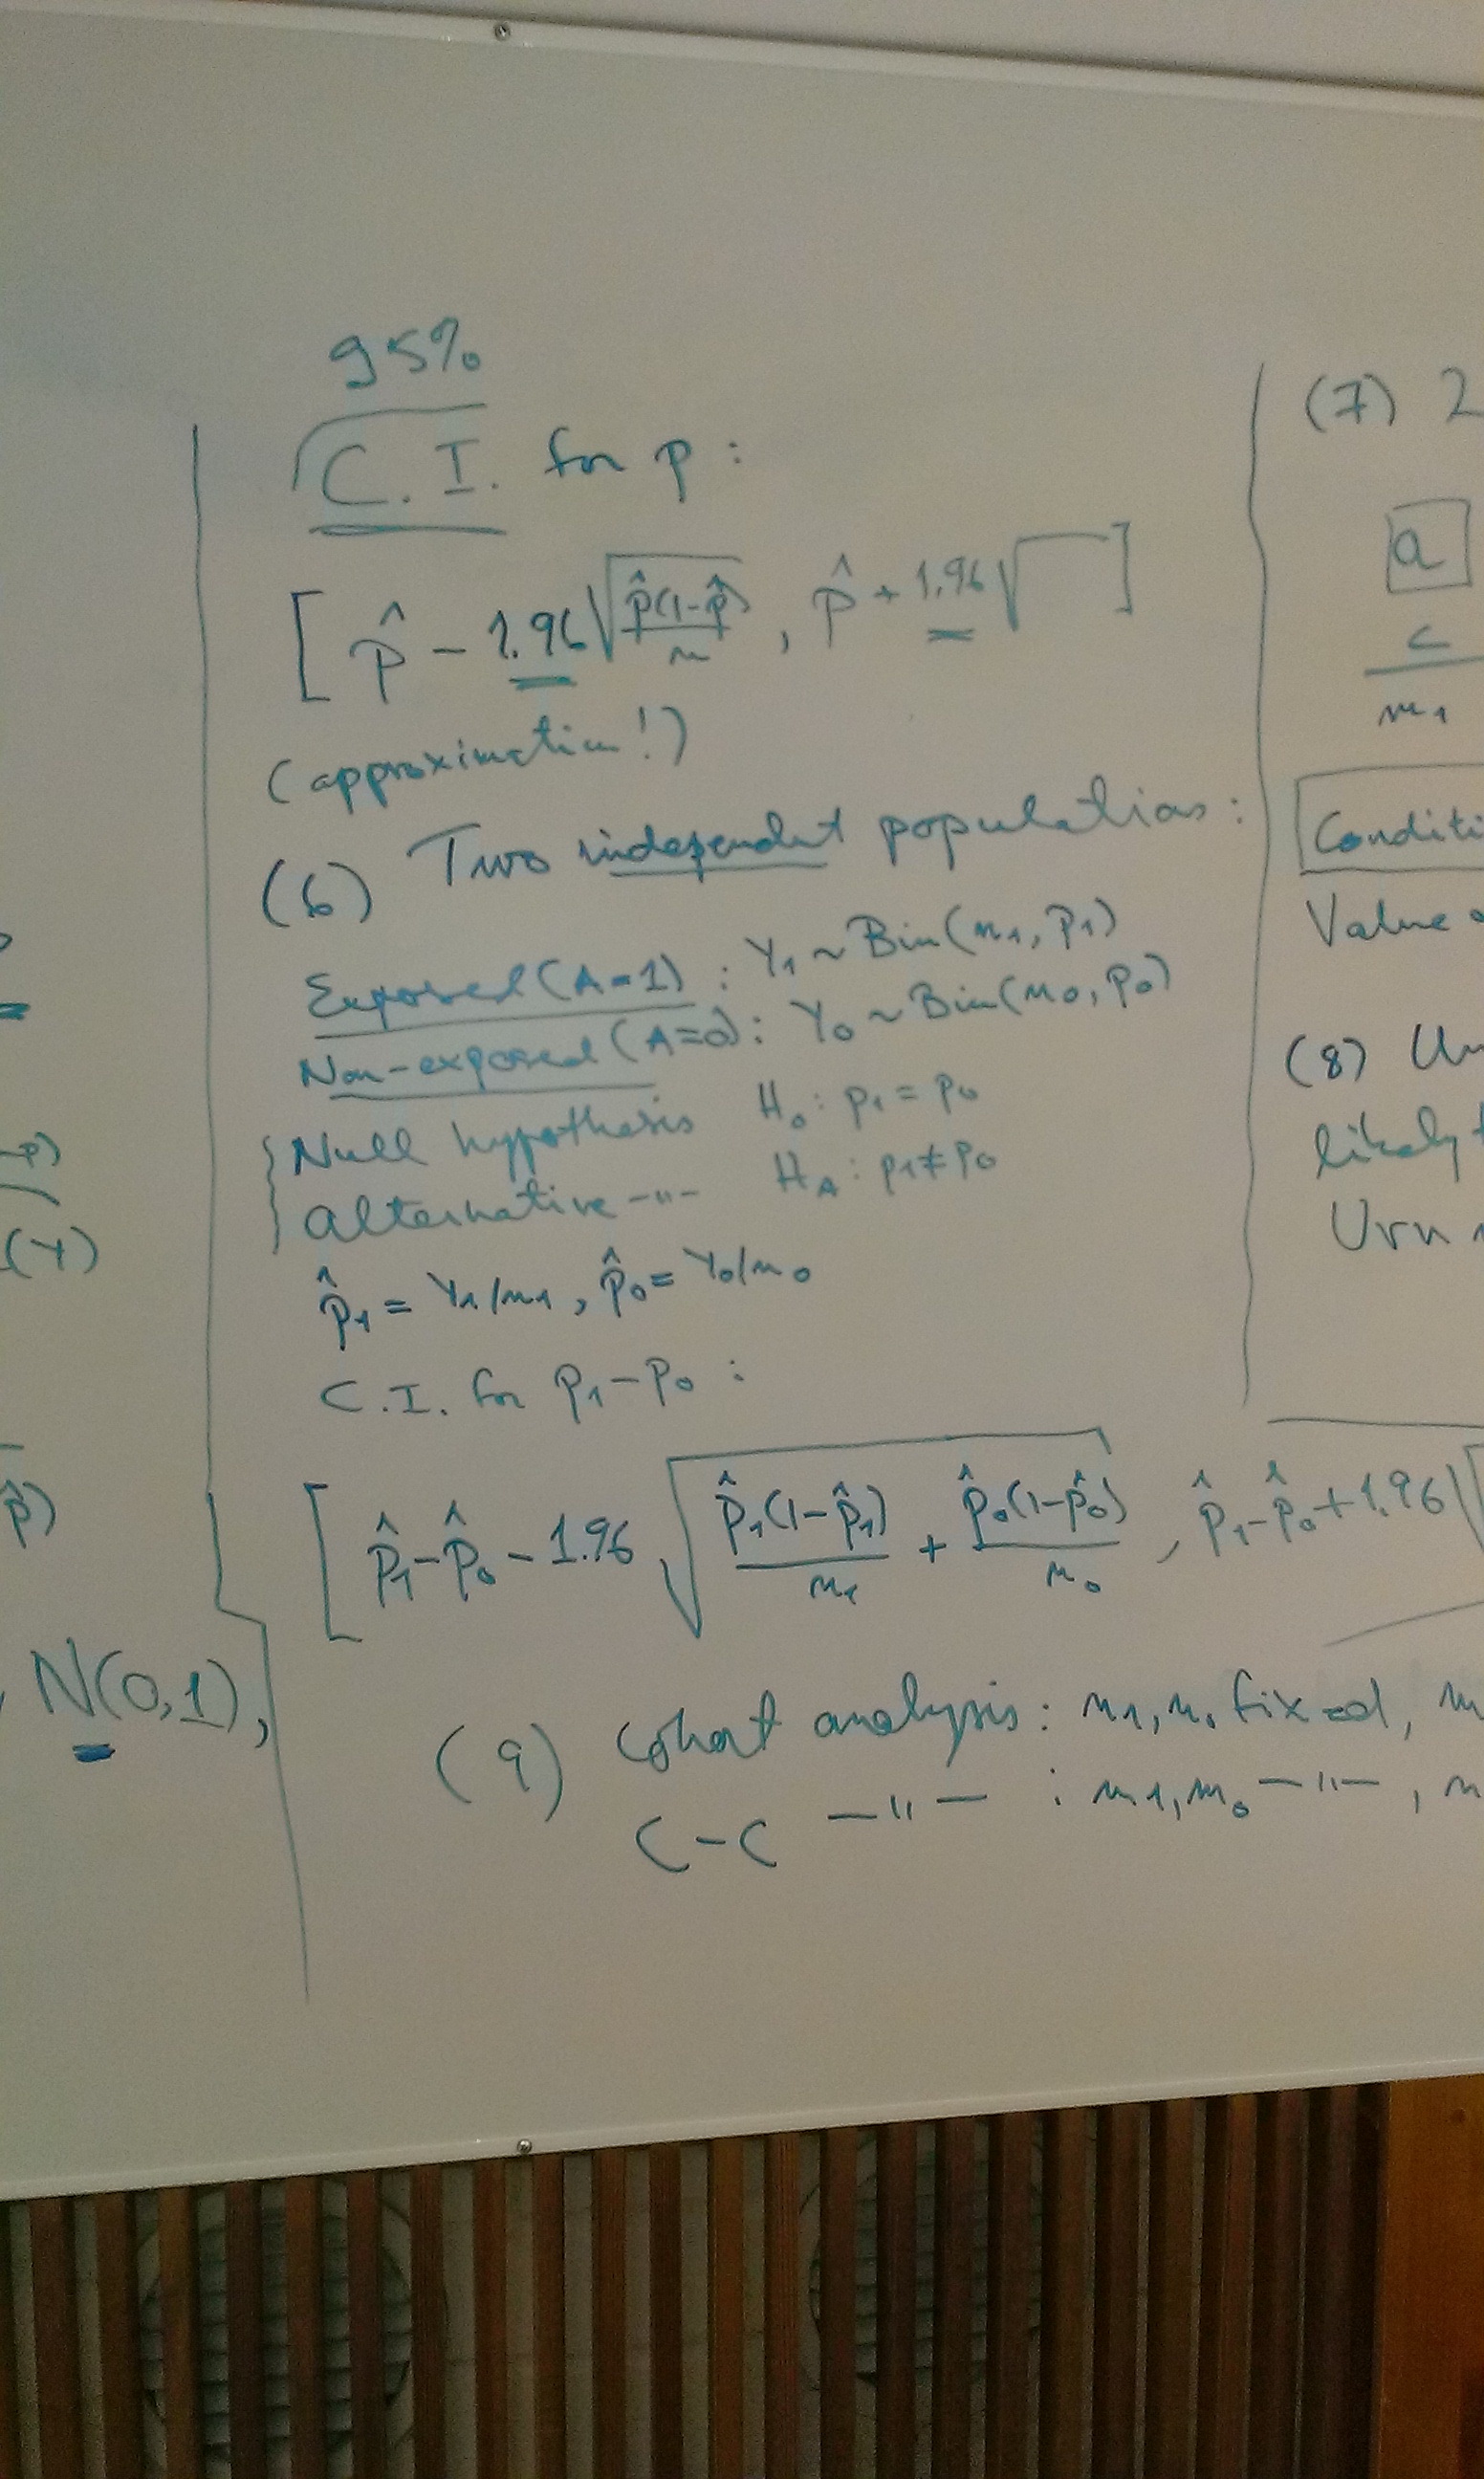 N(0,1),
95%
C.I. for p:
[ p̂ - 1.96 √(p̂(1-p̂)/n) , p̂ + 1.96 √ ]
(approximation!)
(6) Two independent populations:
Exposed (A=1): Y₁ ~ Bin(n₁, p₁)
Non-exposed (A=0): Y₀ ~ Bin(n₀, p₀)
Null hypothesis H₀: p₁ = p₀
Alternative -"- H_A: p₁ ≠ p₀
p̂₁ = Y₁/n₁, p̂₀ = Y₀/n₀
C.I. for p₁-p₀:
[ p̂₁-p̂₀ - 1.96 √(p̂₁(1-p̂₁)/n₁ + p̂₀(1-p̂₀)/n₀) , p̂₁-p̂₀ + 1.96 √
(9) Cohort analysis: n₁, n₀ fixed, m
C-C -"- : m₁, m₀ -"-, n
(7) 2
a
c
m₁
Conditi
Value
(8) Un
likely
Urn